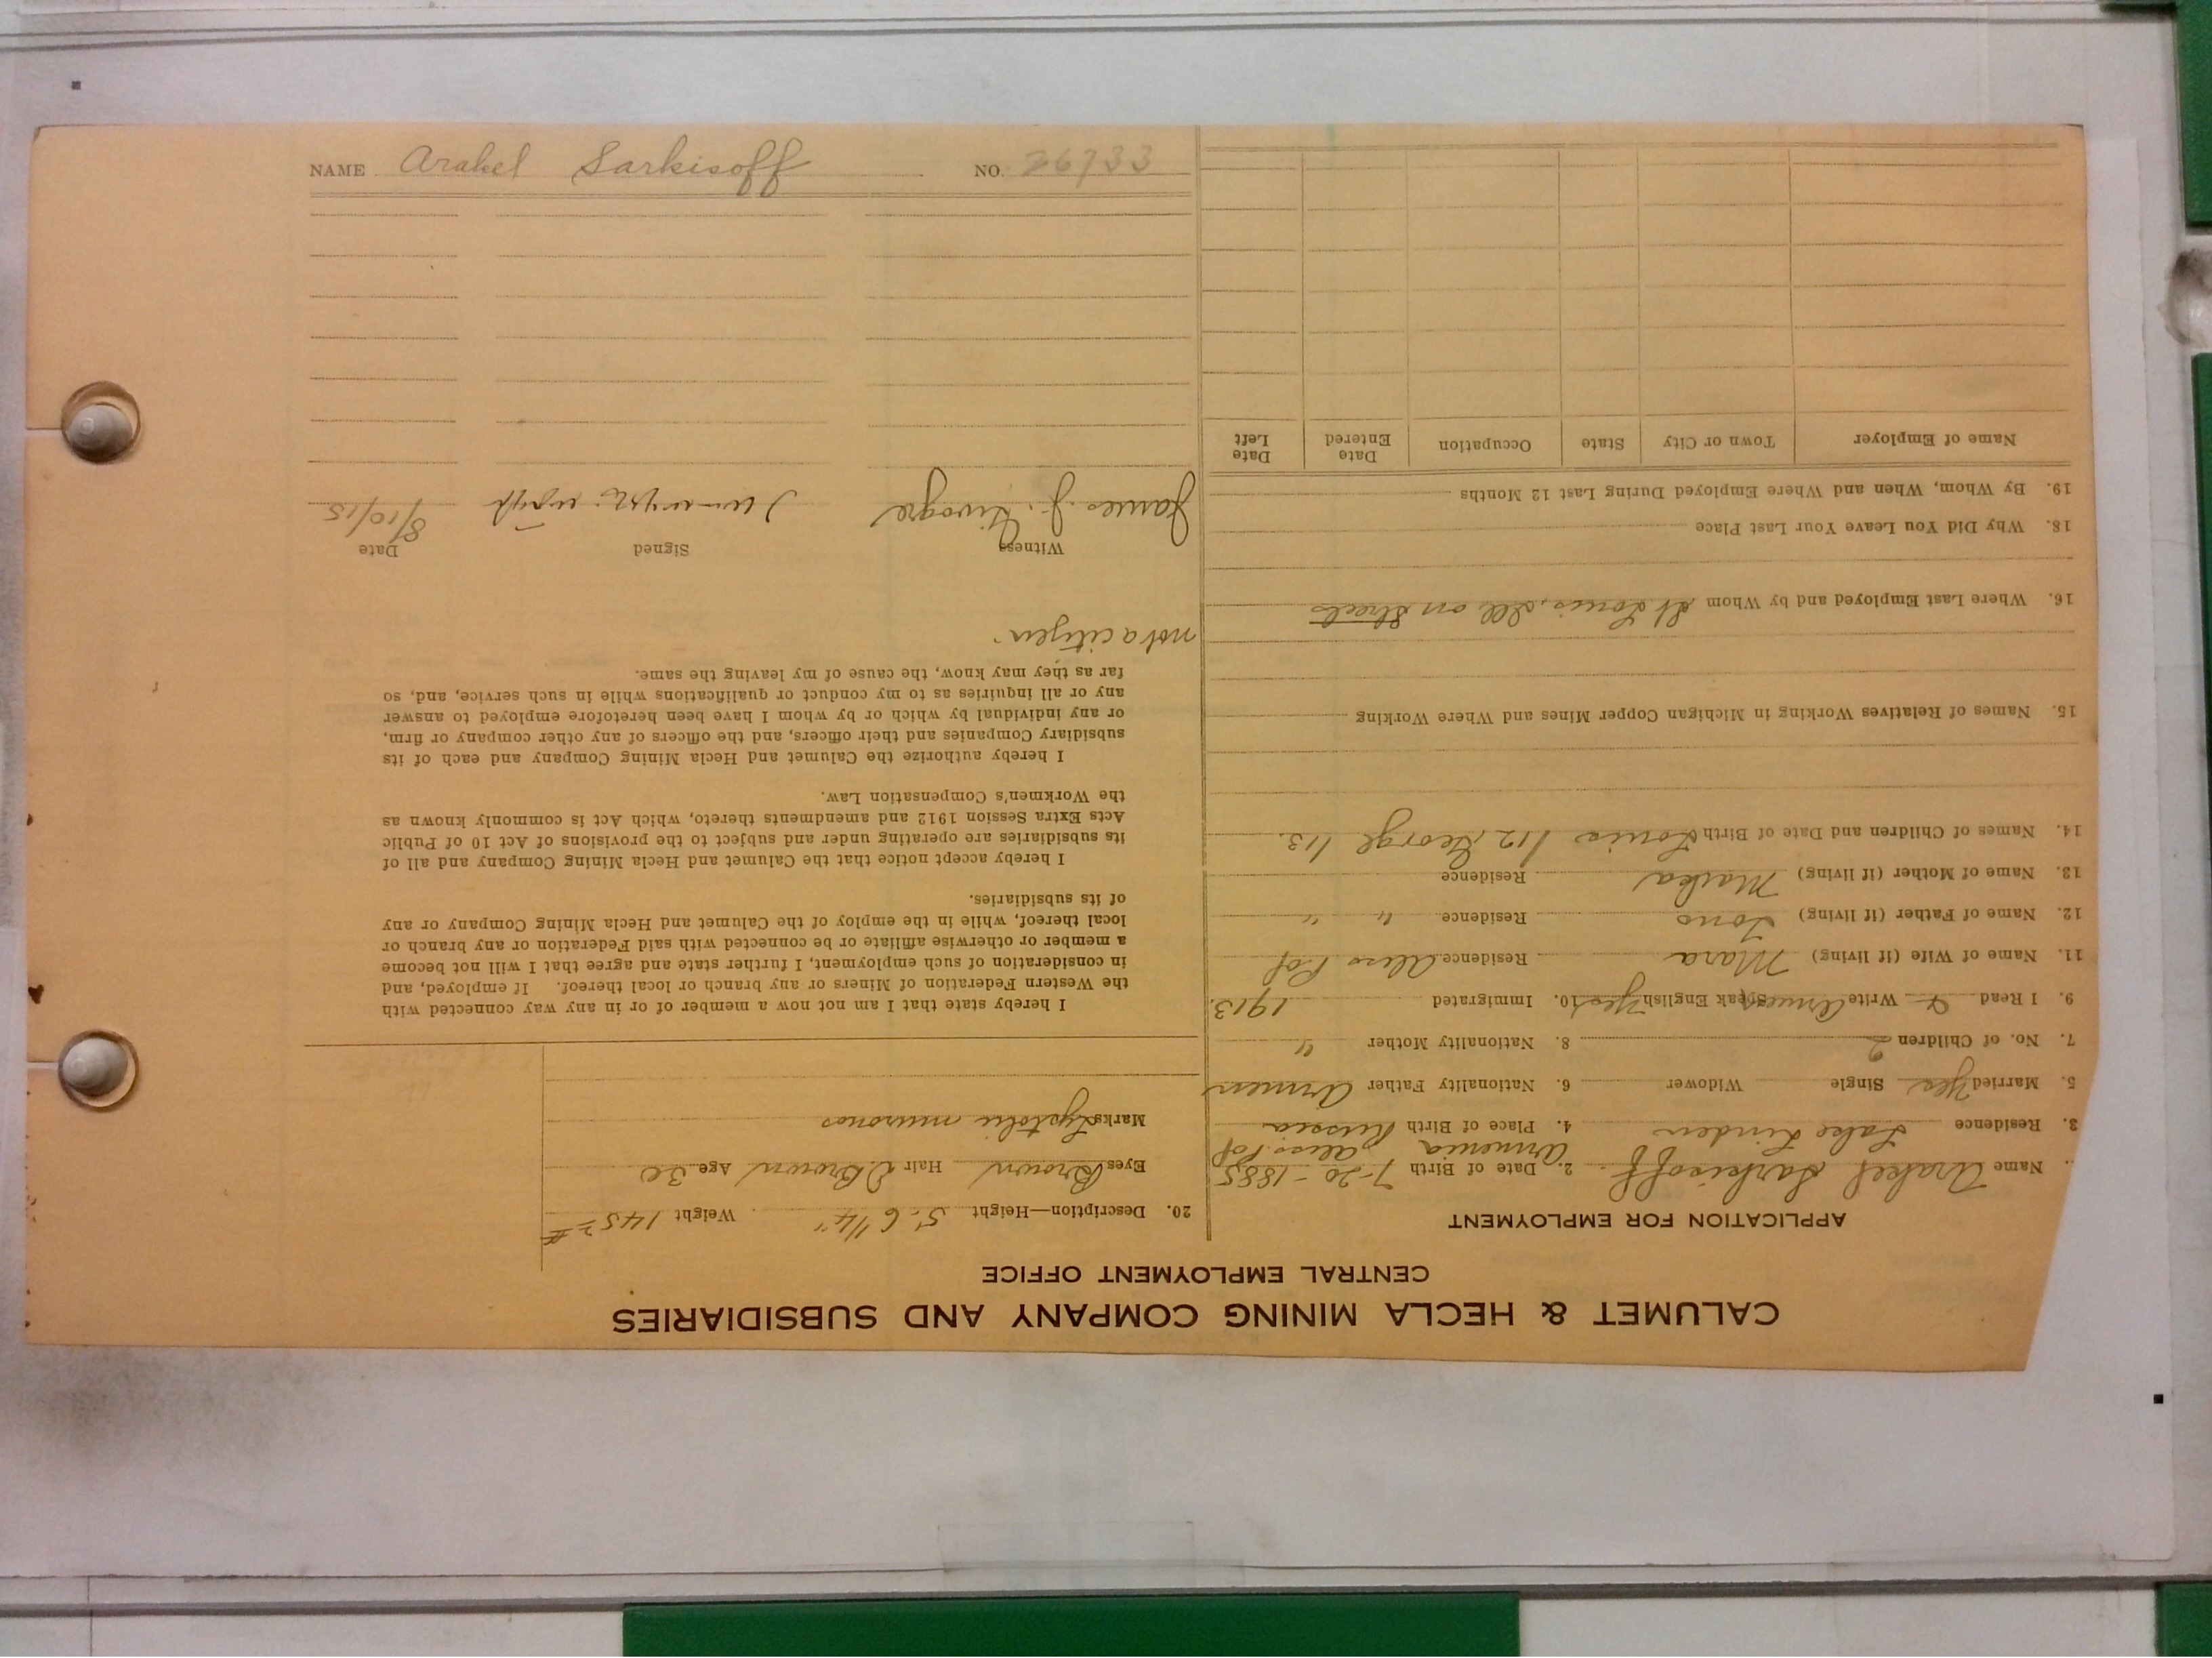 NAME Arakel Sarkisoff NO. 26733
CALUMET & HECLA MINING COMPANY AND SUBSIDIARIES
CENTRAL EMPLOYMENT OFFICE
APPLICATION FOR EMPLOYMENT
Name Arakel Sarkisoff 2. Date of Birth 7-20-1885
Armenia
3. Residence Lake Linden 4. Place of Birth Russia
5. Married Yes Single Widower 6. Nationality Father Armen
7. No. of Children 2 8. Nationality Mother "
9. I Read & Write Armen Speak English Yes 10. Immigrated 1913
11. Name of Wife (if living) Mara Residence
12. Name of Father (if living) Residence " "
13. Name of Mother (if living) Residence
14. Names of Children and Date of Birth Louis /12, George /13.
15. Names of Relatives Working in Michigan Copper Mines and Where Working
16. Where Last Employed and by Whom St Louis, Ill on Streets
18. Why Did You Leave Your Last Place
19. By Whom, When and Where Employed During Last 12 Months
Name of Employer Town or City State Occupation Date Entered Date Left
20. Description—Height 5' 6 1/4" Weight 145 #
Eyes Brown Hair D. Brown Age 30
Marks
I hereby state that I am not now a member of or in any way connected with
the Western Federation of Miners or any branch or local thereof. If employed, and
in consideration of such employment, I further state and agree that I will not become
a member or otherwise affiliate or be connected with said Federation or any branch or
local thereof, while in the employ of the Calumet and Hecla Mining Company or any
of its subsidiaries.
I hereby accept notice that the Calumet and Hecla Mining Company and all of
its subsidiaries are operating under and subject to the provisions of Act 10 of Public
Acts Extra Session 1912 and amendments thereto, which Act is commonly known as
the Workmen's Compensation Law.
I hereby authorize the Calumet and Hecla Mining Company and each of its
subsidiary Companies and their officers, and the officers of any other company or firm,
or any individual by which or by whom I have been heretofore employed to answer
any or all inquiries as to my conduct or qualifications while in such service, and, so
far as they may know, the cause of my leaving the same.
not a citizen.
Witness Signed Date
James J. 8/10/15